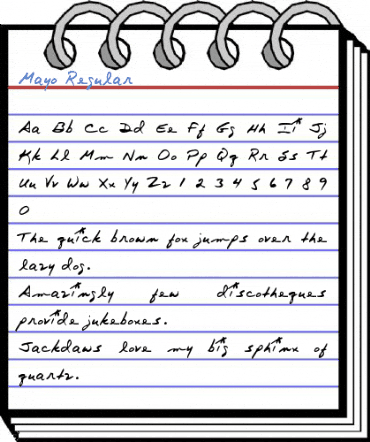 Mayo Regular
Aa Bb Cc Dd Ee Ff Gg Hh Ii Jj
Kk Ll Mm Nn Oo Pp Qq Rr Ss Tt
Uu Vv Ww Xx Yy Zz 1 2 3 4 5 6 7 8 9
0
The quick brown fox jumps over the
lazy dog.
Amazingly few discotheques
provide jukeboxes.
Jackdaws love my big sphinx of
quartz.